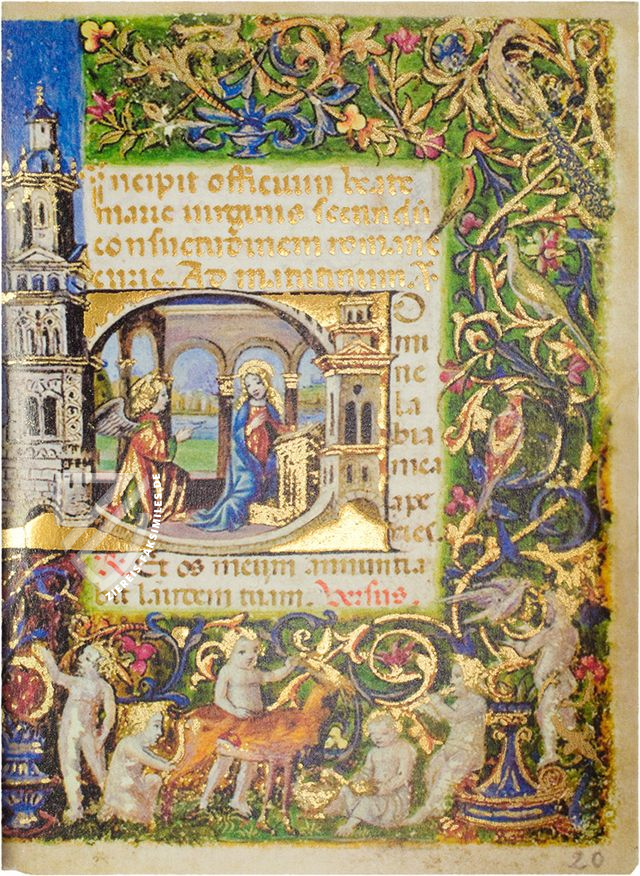 incipit officium beate
marie virginis secundū
consuetudinem romane
curie. Ad matutinum.
DO
mi
ne
la
bia
mea
ape
ries.
Et os meum annuntia
bit laudem tuam. Versus.
20